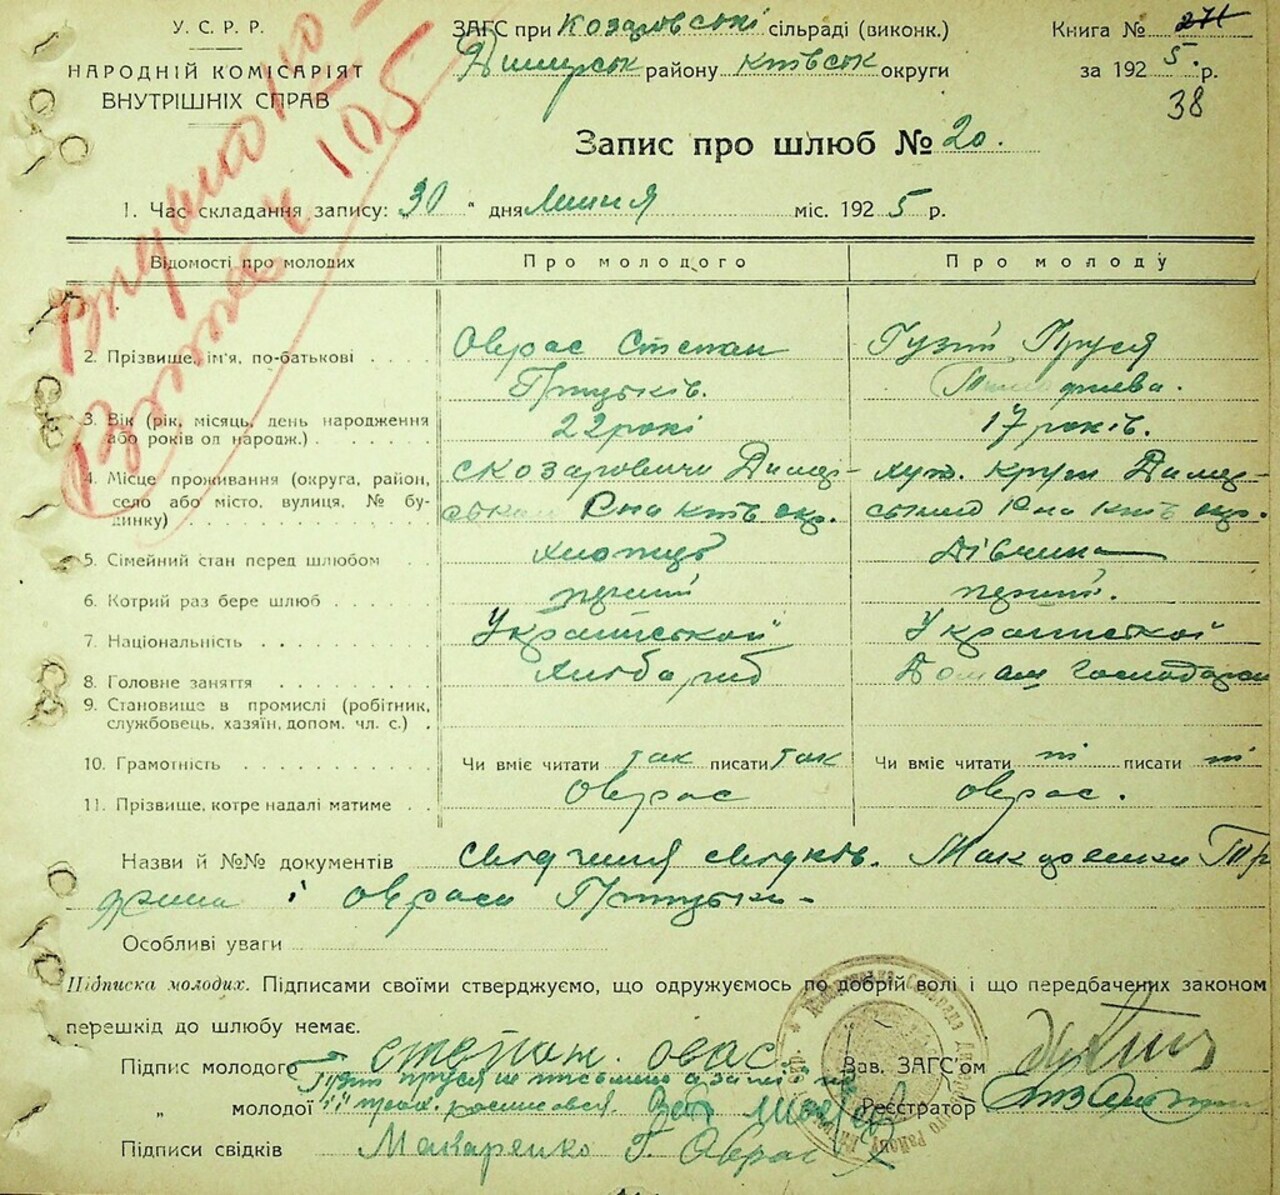 У.С.Р.Р.
НАРОДНІЙ КОМІСАРІЯТ
ВНУТРІШНІХ СПРАВ
ЗАГС при Козаровські сільраді (виконк.)
Димирськ району Київськ округи
Книга № 271
за 1925 р.
38
Запис про шлюб № 20.
1. Час складання запису: 30 " дня Липня міс. 1925 р.
105
Відомості про молодих Про молодого Про молоду
2. Прізвище, ім'я, по-батькові Оврас Степан Гузій Пруся
3. Вік (рік, місяць, день народження або років од народж.) 22 рокі 17 років.
4. Місце проживання (округа, район, село або місто, вулиця, № будинку) с Козаровичи Димирської Р-на Київ окр. хут. Димирського Р-на Київ окр.
5. Сімейний стан перед шлюбом хлопець дівчина
6. Котрий раз бере шлюб перший перший.
7. Національність Української Української
8. Головне заняття Хлібороб Домаш господарка
9. Становище в промислі (робітник, службовець, хазяїн, допом. чл. с.)
10. Грамотність Чи вміє читати так писати так Чи вміє читати ні писати ні
11. Прізвище, котре надалі матиме Оврас Оврас.
Назви й №№ документів свідчення свідків. Макаренка
і Овраса
Особливі уваги
Підписка молодих. Підписами своїми стверджуємо, що одружуємось по добрій волі і що передбачених законом
перешкід до шлюбу немає.
Підпис молодого Степан. Овас.
Вав. ЗАГС'ом
„ молодої
Реєстратор
Підписи свідків Макаренко Г. Оврас